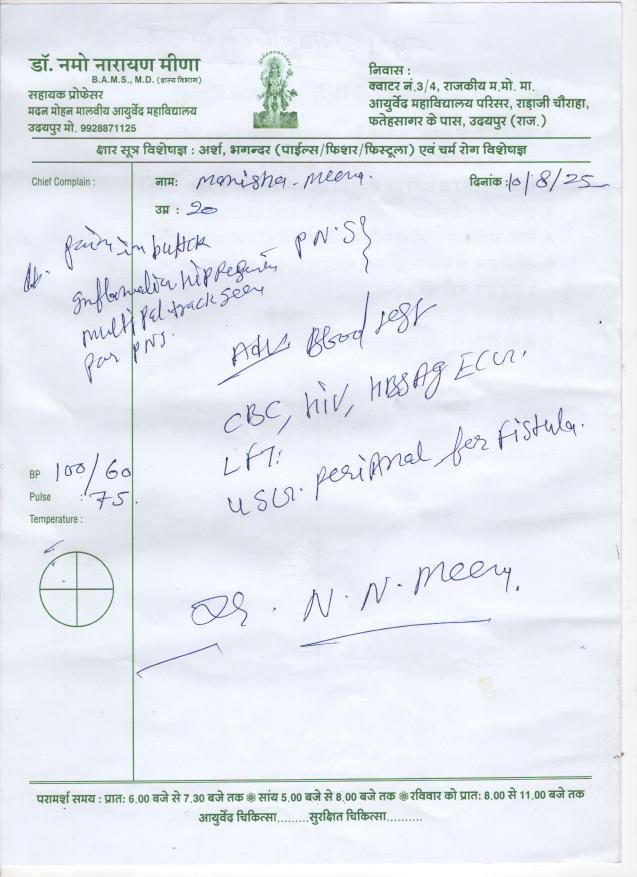 डॉ. नमो नारायण मीणा
B.A.M.S., M.D. (शल्य विभाग)
सहायक प्रोफेसर
मदन मोहन मालवीय आयुर्वेद महाविद्यालय
उदयपुर मो. 9928871125
DHANVANTARI
निवास :
क्वाटर नं.3/4, राजकीय म.मो. मा.
आयुर्वेद महाविद्यालय परिसर, राड़ाजी चौराहा,
फतेहसागर के पास, उदयपुर (राज.)
क्षार सूत्र विशेषज्ञ : अर्श, भगन्दर (पाईल्स/फिशर/फिस्टूला) एवं चर्म रोग विशेषज्ञ
Chief Complain :
नाम: Manisha Meena.
दिनांक : 10/8/25
उम्र : 20
pain in buttck
P.N.S }
hip region
multipal track seen
for PNS.
Adv. Blood test
CBC, HIV, HBSAg
LFT:
USG. perianal for fistula.
BP 100/60
Pulse : 75.
Temperature :
Dr. N. N. Meena.
परामर्श समय : प्रात: 6.00 बजे से 7.30 बजे तक ❋ सांय 5.00 बजे से 8.00 बजे तक ❋ रविवार को प्रात: 8.00 से 11.00 बजे तक
आयुर्वेद चिकित्सा.........सुरक्षित चिकित्सा..........